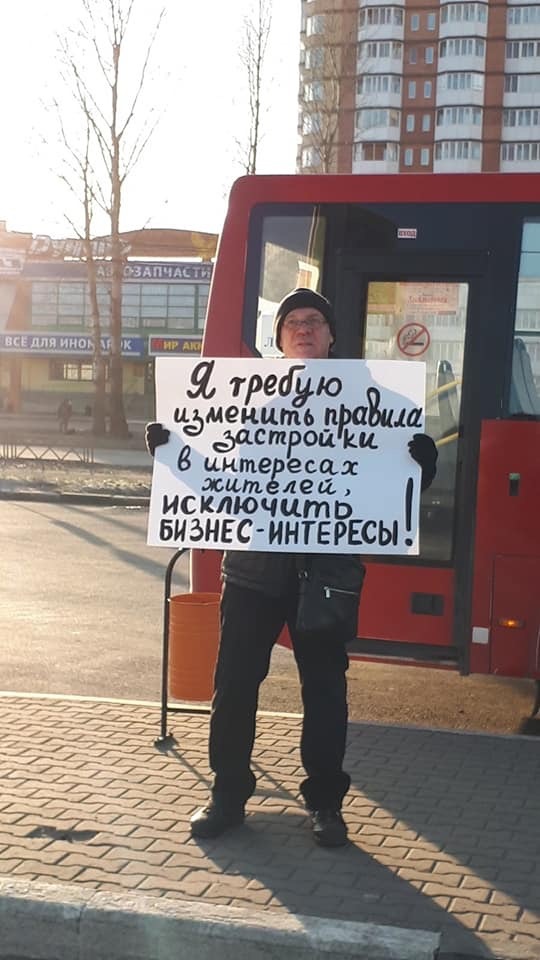 АВТОЗАПЧАСТИ
ВСЕ ДЛЯ ИНОМАРОК
МИР АК
ВХОД
Я требую
изменить правила
застройки
в интересах
жителей,
исключить
БИЗНЕС-ИНТЕРЕСЫ!